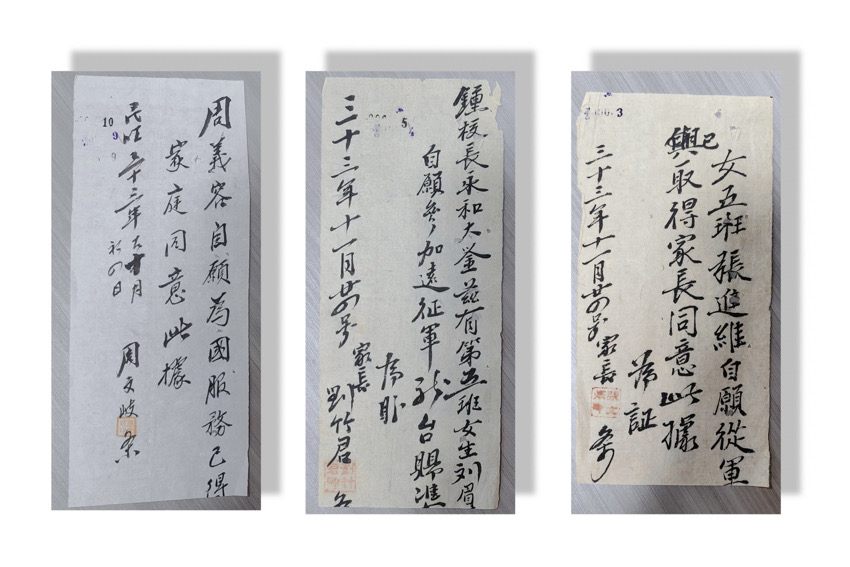 周義容自願為國服務已得
家庭同意此據
民國三十三年十一月
廿四日
周文岐
10
9
鍾校長永和大鑒茲有第五班女生刘眉
自願參加遠征軍
台賜准
為盼
家長
劉竹君
三十三年十一月廿四号
5
女五班張進維自願從軍
已取得家長同意此據
為証
三十三年十一月廿四号家長
3